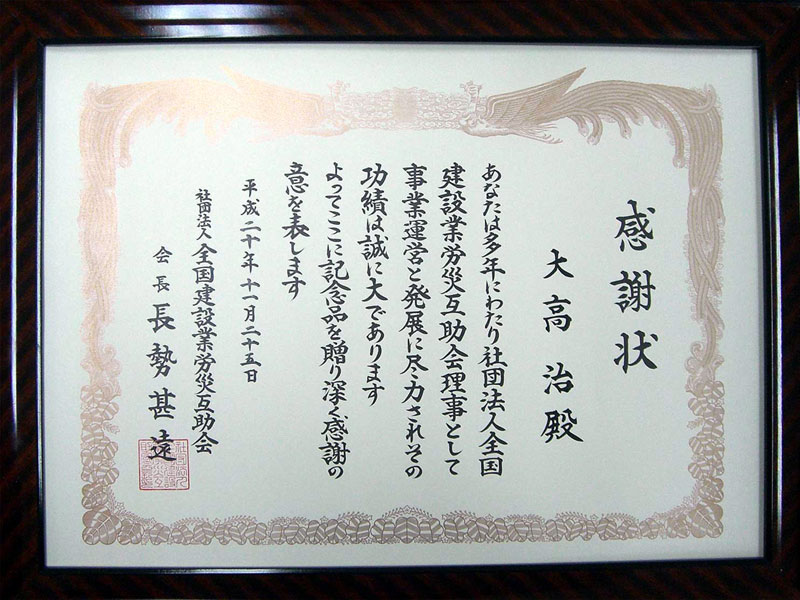 感謝状
大高治殿
あなたは多年にわたり社団法人全国
建設業労災互助会理事として
事業運営と発展に尽力されその
功績は誠に大であります
よってここに記念品を贈り深く感謝の
意を表します
平成二十年十一月二十五日
社団法人全国建設業労災互助会
会長長勢甚遠